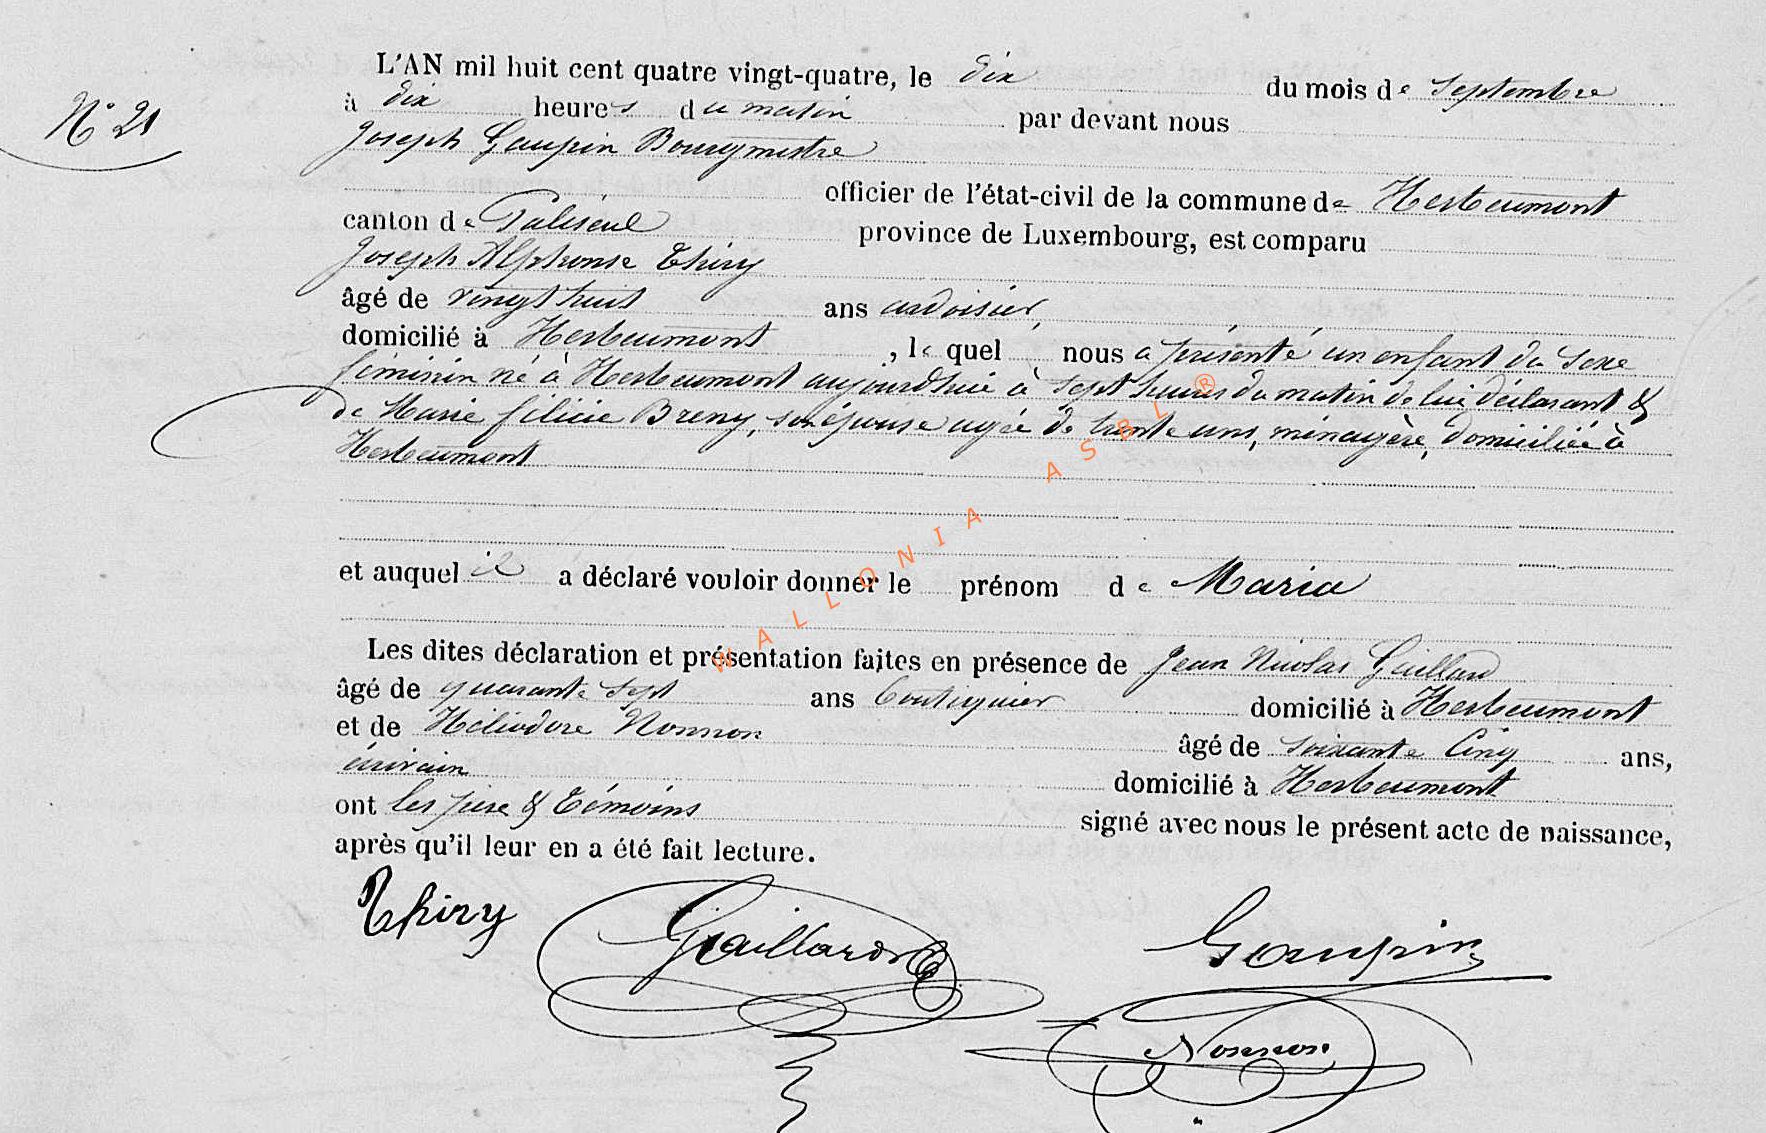 N° 21
L'AN mil huit cent quatre vingt-quatre, le dix du mois de Septembre
à dix heures du matin par devant nous
Joseph Goupin Bourgmestre
officier de l'état-civil de la commune de Herbeumont
canton de Paliseul province de Luxembourg, est comparu
Joseph Alphonse Thiry
âgé de vingt huit ans ardoisier,
domicilié à Herbeumont, lequel nous a présenté un enfant du sexe
féminin né à Herbeumont aujourdhui à sept heures du matin de lui déclarant &
de Marie Félicie Breny, son épouse agée de trente ans, ménagère, domiciliée à
Herbeumont
et auquel il a déclaré vouloir donner le prénom de Maria
Les dites déclaration et présentation faites en présence de Jean Nicolas Gaillard
âgé de quarante sept ans boutiquier domicilié à Herbeumont
et de Héliodore Nonnon âgé de soixante cinq ans,
écrivain domicilié à Herbeumont
ont les père & témoins signé avec nous le présent acte de naissance,
après qu'il leur en a été fait lecture.
Thiry Gaillard Goupin
Nonnon
WALLONIA ASBL ®